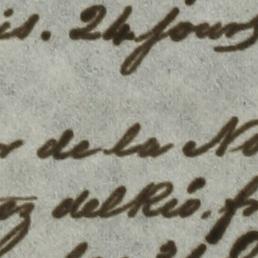 is. 24 jours
r de la No
ez del Rió. fr